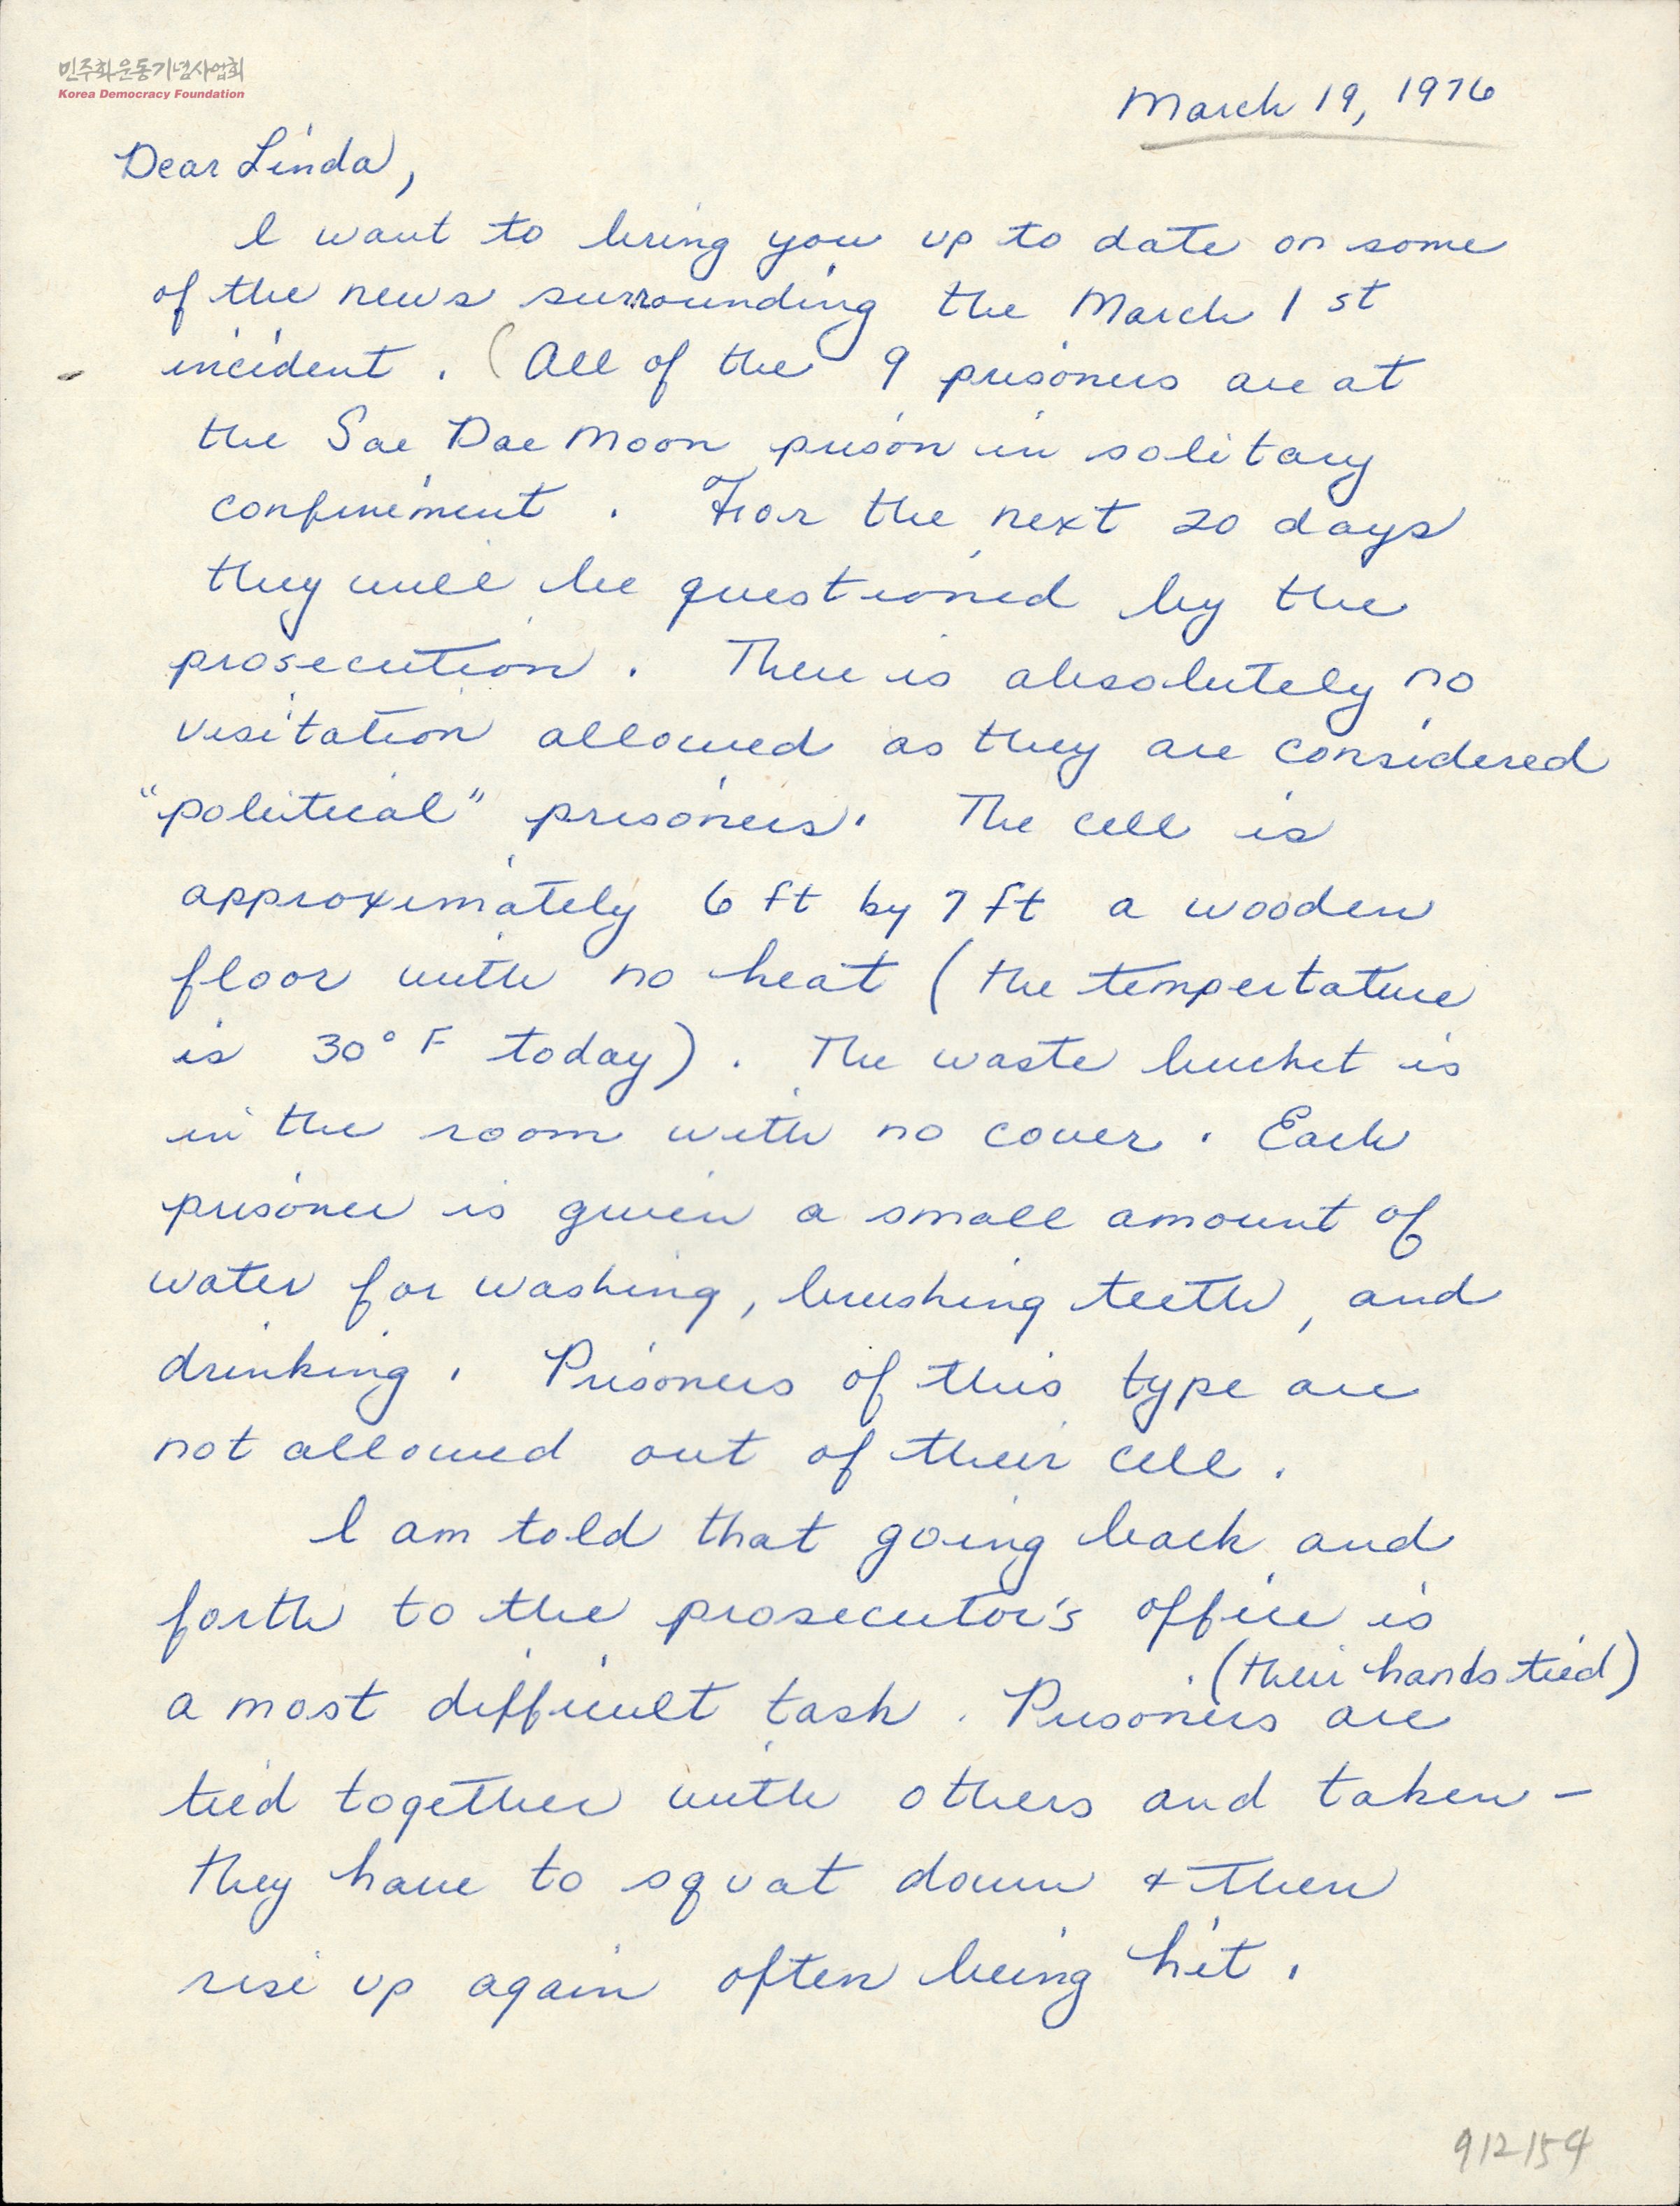 민주화운동기념사업회
Korea Democracy Foundation
March 19, 1976
Dear Linda,
I want to bring you up to date on some
of the news surrounding the March 1st
incident. (All of the 9 prisoners are at
the Sae Dae Moon prison in solitary
confinement. For the next 20 days
they will be questioned by the
prosecution. There is absolutely no
visitation allowed as they are considered
"political" prisoners. The cell is
approximately 6 ft by 7 ft a wooden
floor with no heat (the tempertature
is 30° F today). The waste bucket is
in the room with no cover. Each
prisoner is given a small amount of
water for washing, brushing teeth, and
drinking. Prisoners of this type are
not allowed out of their cell.
I am told that going back and
forth to the prosecutor's office is
(their hands tied)
a most difficult task. Prisoners are
tied together with others and taken -
they have to squat down & then
rise up again often being hit.
912154